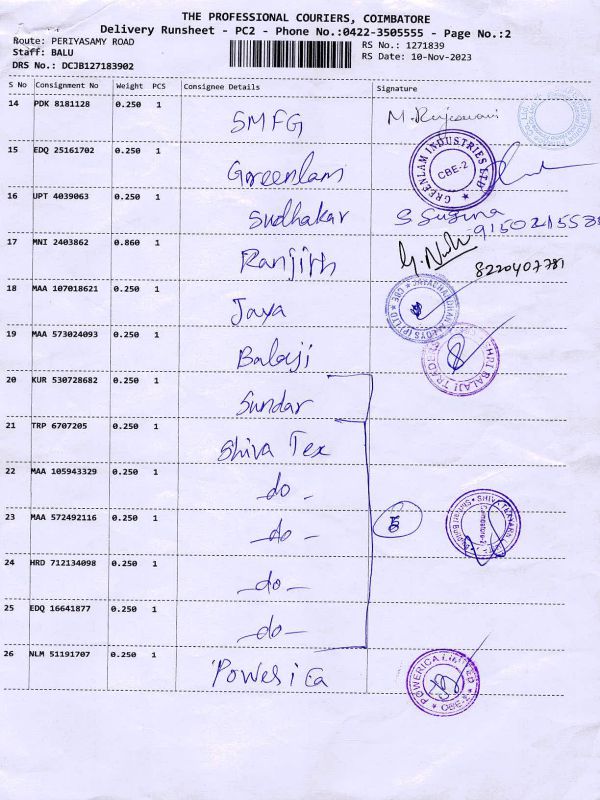 THE PROFESSIONAL COURIERS, COIMBATORE
Delivery Runsheet - PC2 - Phone No.:0422-3505555 - Page No.:2
Route: PERIYASAMY ROAD
RS No.: 1271839
Staff: BALU
RS Date: 10-Nov-2023
DRS No.: DCJB127183902
S No Consignment No Weight PCS Consignee Details Signature
14 PDK 8181128 0.250 1 SMFG
15 EDQ 25161702 0.250 1 Greenlam GREENLAM INDUSTRIES LTD CBE-2
16 UPT 4039063 0.250 1 Sudhakar S
17 MNI 2403862 0.860 1 Ranjith 8220407781
18 MAA 107018621 0.250 1 Jaya
19 MAA 573024093 0.250 1 Balaji SHRI BALAJI TRADERS
20 KUR 530728682 0.250 1 Sundar
21 TRP 6707205 0.250 1 Shiva Tex
22 MAA 105943329 0.250 1 -do-
23 MAA 572492116 0.250 1 -do-
24 HRD 712134098 0.250 1 -do-
25 EDQ 16641877 0.250 1 -do-
26 NLM 51191707 0.250 1 Powerica POWERICA LIMITED CBE